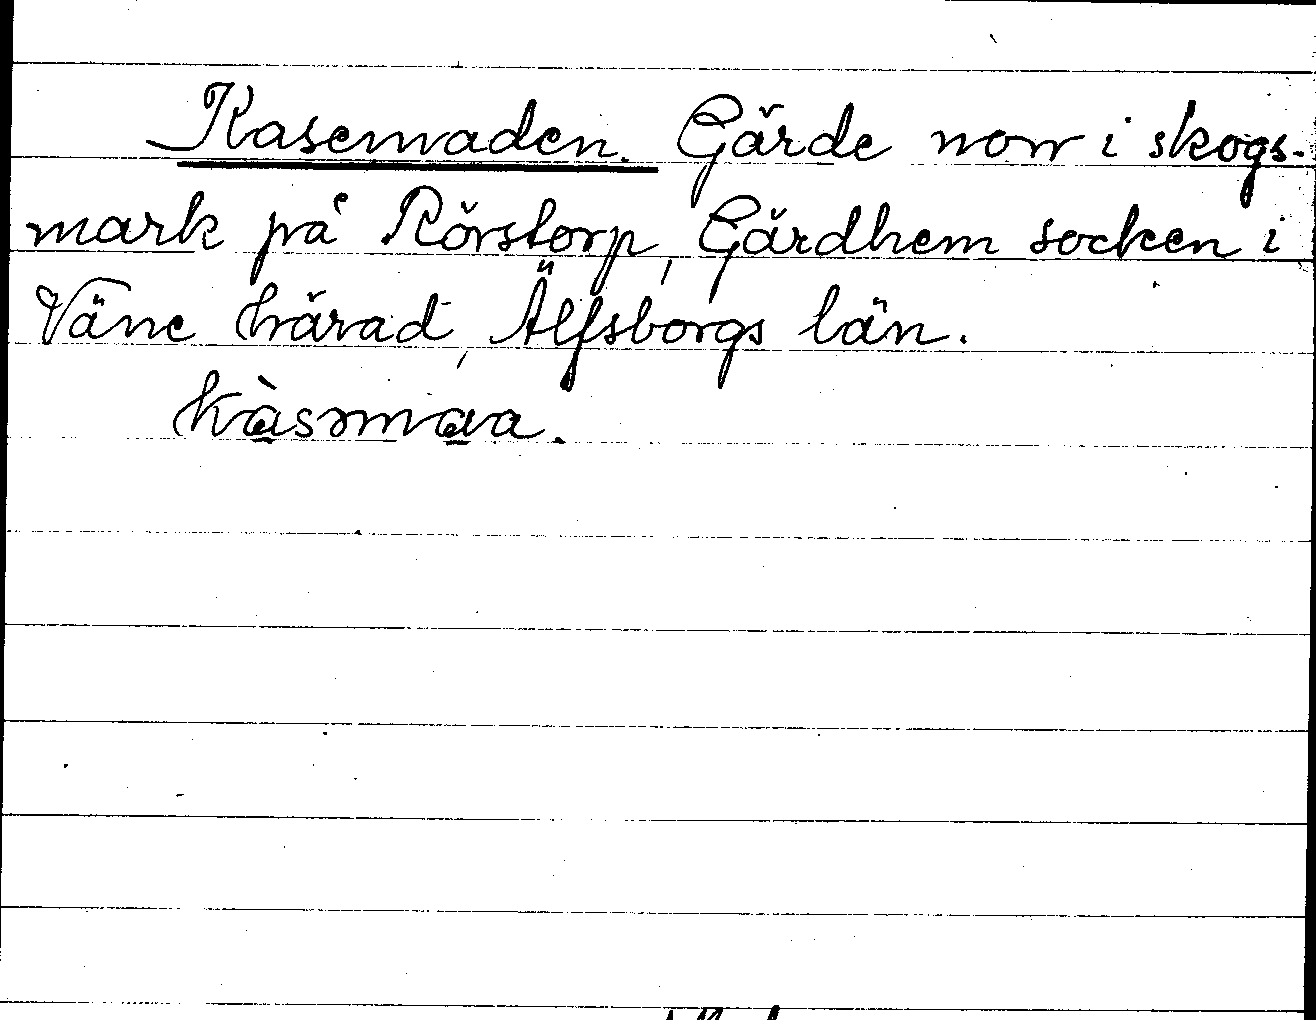 Kasemaden. Gärde norr i skogs-
mark på Rörstorp, Gärdhem socken i
Väne härad, Älfsborgs län.
kàsəmaa.